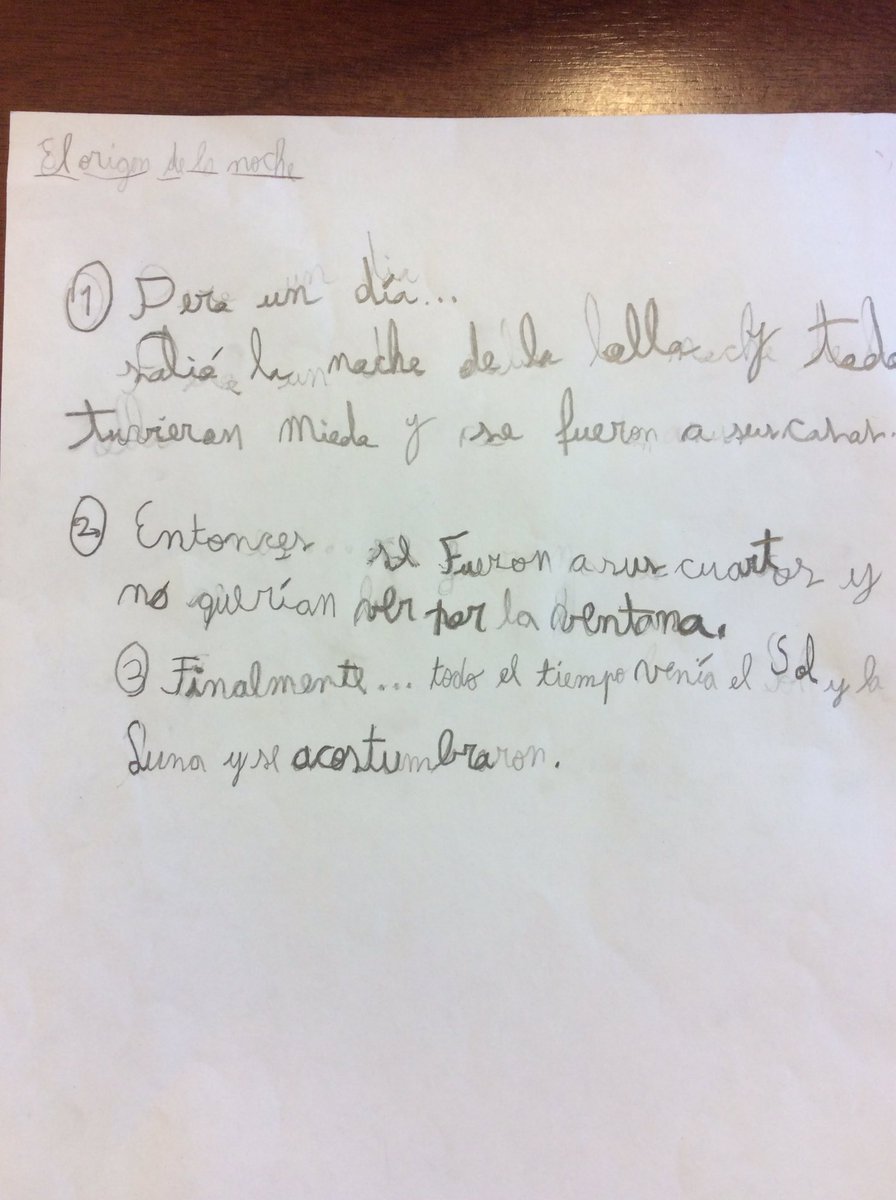 El origen de la noche
① Pero un día...
salió la noche de la olla y todo
tuvieron miedo y se fueron a sus casas.
② Entonces... se Fueron a sus cuartos y
no querían ver por la ventana.
③ Finalmente... todo el tiempo venía el Sol y la
Luna y se acostumbraron.